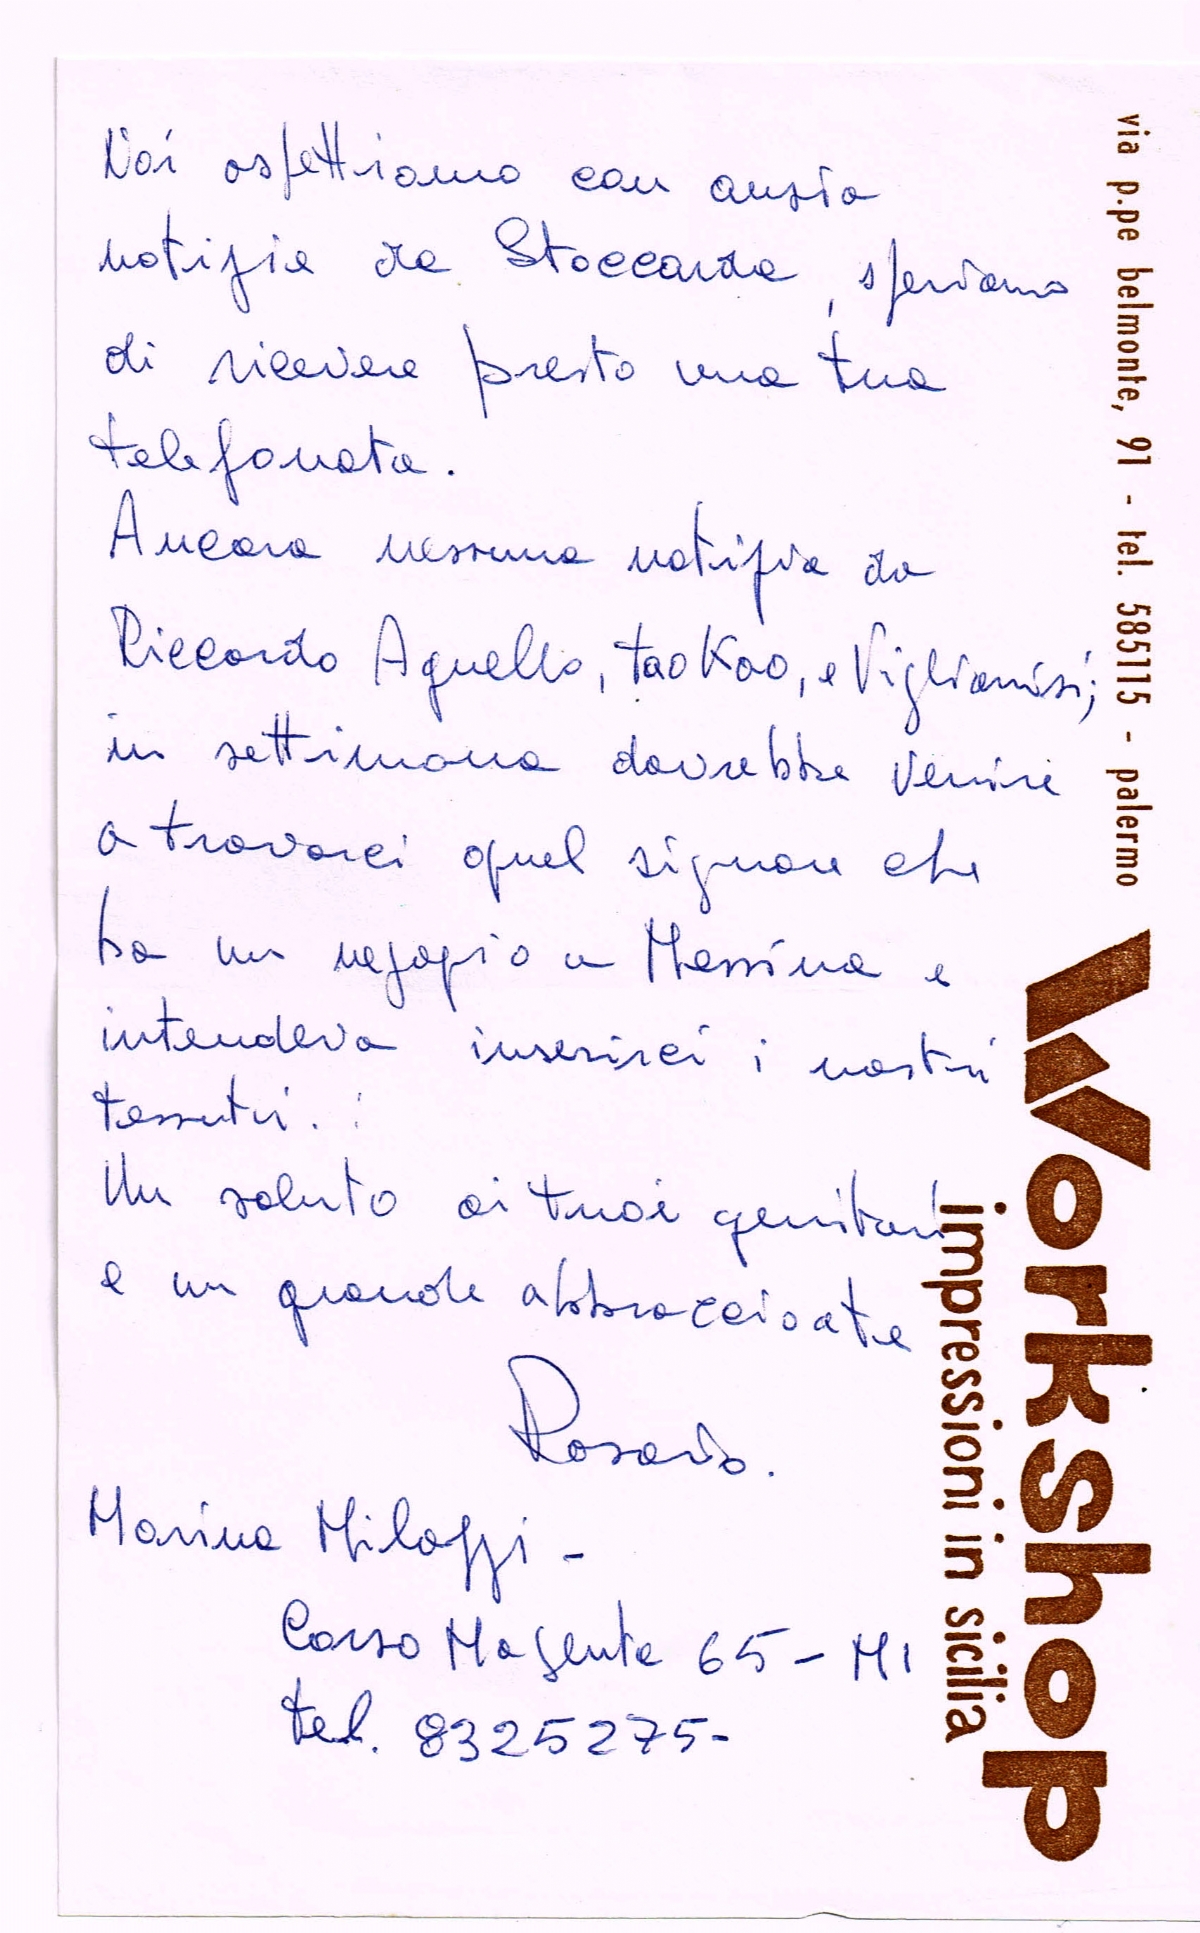 Noi aspettiamo con ansia
notizie da Stoccarda, speriamo
di ricevere presto una tua
telefonata.
Ancora nessuna notizia da
Riccardo Agnello, Tao Kao, e Viglianisi;
in settimana dovrebbe venire
a trovarci quel signore che
ha un negozio a Messina e
intendeva inserirci i nostri
tessuti.
Un saluto ai tuoi genitori
e un grande abbraccio a te
Rosario.
Marina Milazzi -
Corso Magenta 65 - MI
tel. 8325275-
via p.pe belmonte, 91 - tel. 585115 - palermo
Workshop
impressioni in sicilia